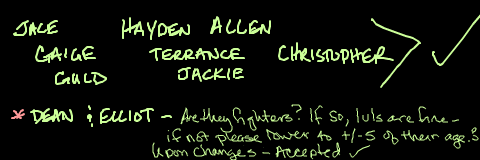 JACE HAYDEN ALLEN
GAIGE TERRANCE CHRISTOPHER
GUILD JACKIE
* DEAN & ELLIOT - Are they fighters? If so, lvls are fine -
if not please lower to +/-5 of their age.?
Upon changes - Accepted ✓